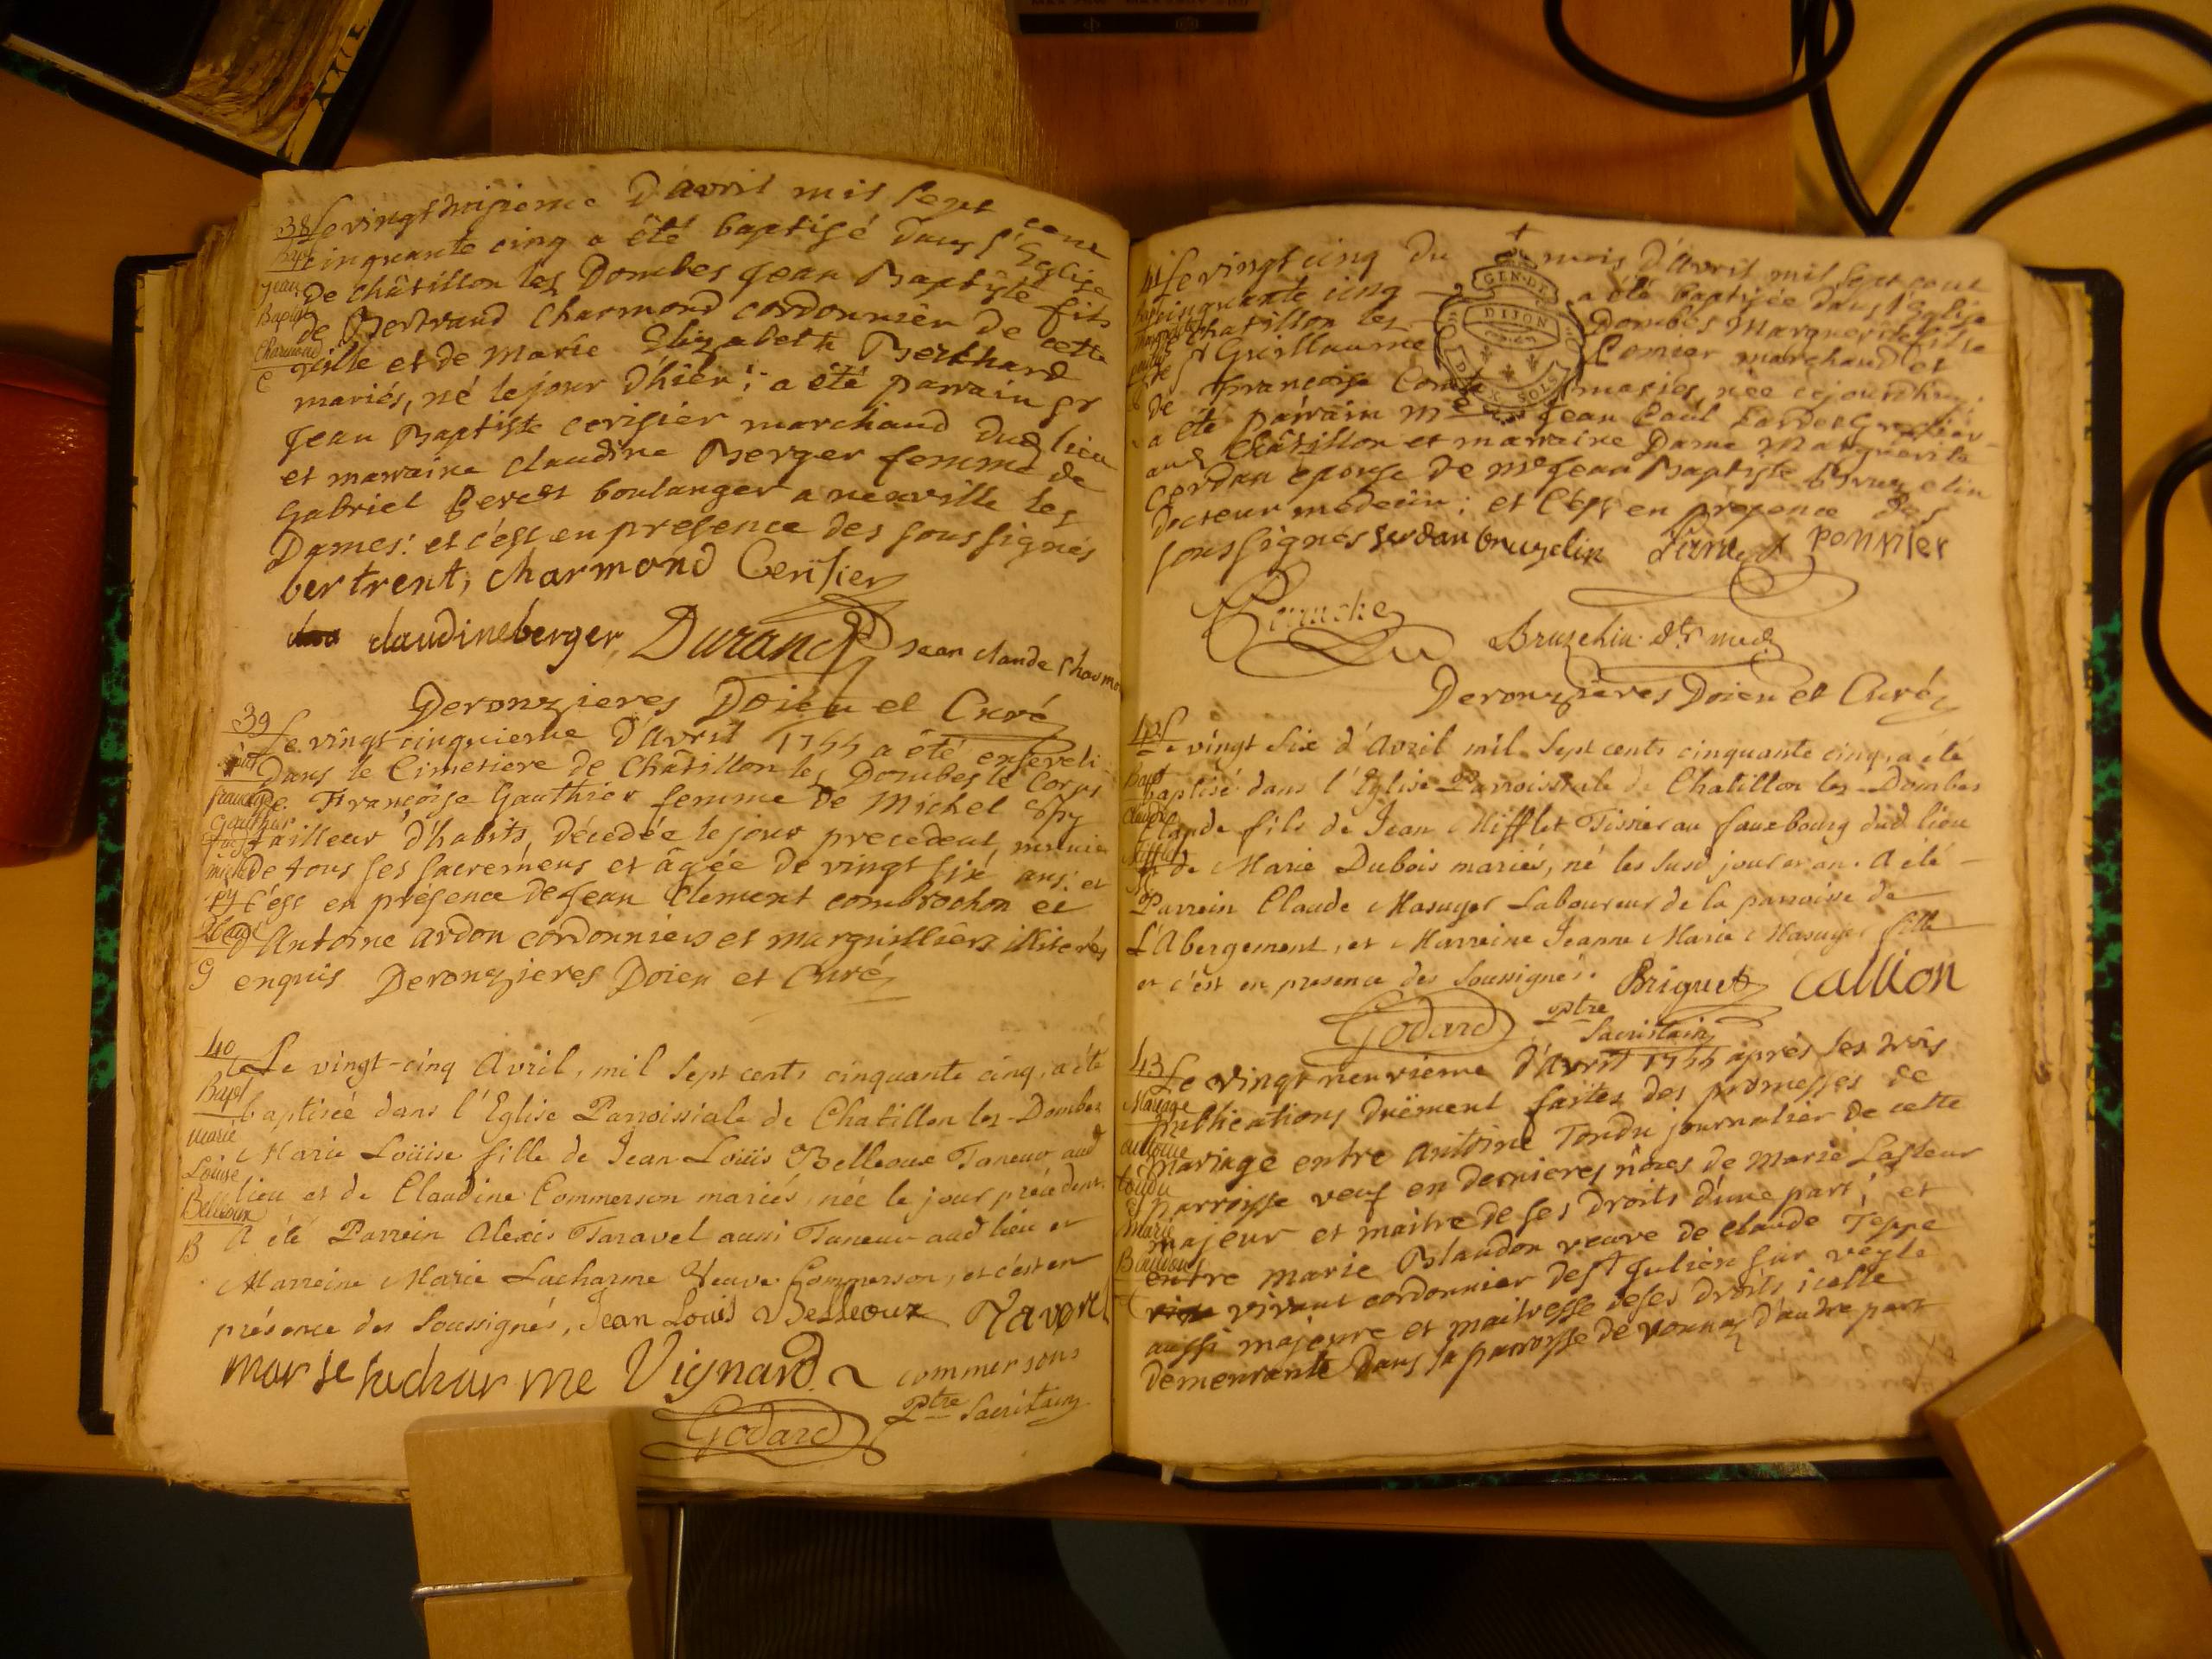 38 Le vingt troisième D'avril mil sept cent
Bapt cinquante cinq a été baptisé dans l'Eglise
Jean De Châtillon les Dombes Jean Baptiste fils
Bapte de Bertrand Charmond cordonnier de cette
Charmond ville et de marie Elizabeth Berthard
C mariés, né le jour d'hier; a été parrain sr
Jean Baptiste cerisier marchand dud lieu
et marraine claudine Berger femme de
Gabriel boulanger a neuville les
Dames: et c'est en presence des soussignés
bertrent, charmond Cerisier
claudineberger, Durand Jean claude Charmo
Deronzieres Doien et Curé
39 Le vingt cinquieme d'Avril 1755 a été enseveli
Dans le Cimetiere de Châtillon les Dombes le Corps
françoise de Françoise Gauthier femme de Michel Opy
Gauthier tailleur d'habits, décedée le jour precedent, munie
de tous ses sacremens et âgée de vingt six ans: et
c'est en présence de Jean Clement combrochon et
d'Antoine ardon cordonniers et marguilliers illiterés
G enquis Deronzieres Doien et Curé
40 Le vingt-cinq Avril, mil Sept cents cinquante cinq, a été
Bapt baptisée dans l'Eglise Parroissiale de Chatillon les Dombes
marie Marie Loüise fille de Jean Loüis Belleoux Taneur aud
Loüise lieu et de Claudine Commerson mariés, née le jour précédent.
Belleoux A été Parrein Alexis Taravel aussi Taneur aud lieu et
B Marreine Marie Lacharme Veuve Commerson, et c'est en
présence des Soussignés, Jean Louis Belleoux Tavarel
Vignard commersons
Godard Ptre Sacristain
41 Le vingt cinq du mois d'Avril mil sept cent
cinquante cinq a été baptisée dans l'Eglise
de Chatillon les Dombes Marguerite fille
de sr Guillaume Ponier marchand et
de Françoise Comte mariés, née cejourdhuy.
a été parrain Me Jean Paul Lardet Greffier
aud Châtillon et marraine Dame Marguerite
Cerdan épouse de Me Jean Baptiste Bruzelin
Docteur médecin; et c'est en présence des
soussignés serdan bruzelin Lardet ponnier
Bruzelin Dtr med
Deronzieres Doien et Curé
42 Le vingt Six d'Avril mil Sept cents cinquante cinq, a été
Bapt baptisé dans l'Eglise Parroissiale de Chatillon les Dombes
Claude Claude fils de Jean Mifflet Tissier au fauxbourg dud lieu
et de Marie Dubois mariés, né les Susd jour et an. A été
Parrein Claude Masuyer Laboureur de la parroisse de
L'Abergement, et Marreine Jeanne Marie Masuyer fille
et c'est en presence des Soussignés. Briguet callion
Godard Ptre Sacristain
43 Le vingt neuvieme d'Avril 1755 après les trois
Mariage publications duëment faites des promesses de
antoine mariage entre Antoine Tondu journalier de cette
tondu parroisse veuf en dernieres nôces de Marie Lasleur
majeur et maitre de ses droits d'une part; et
marie entre marie Blandon veuve de claude Teppe
vivant cordonnier de st Julien sur veyle
aussi majeure et maitresse de ses droits; icelle
demeurante Dans la parroisse de vonnas d'autre part